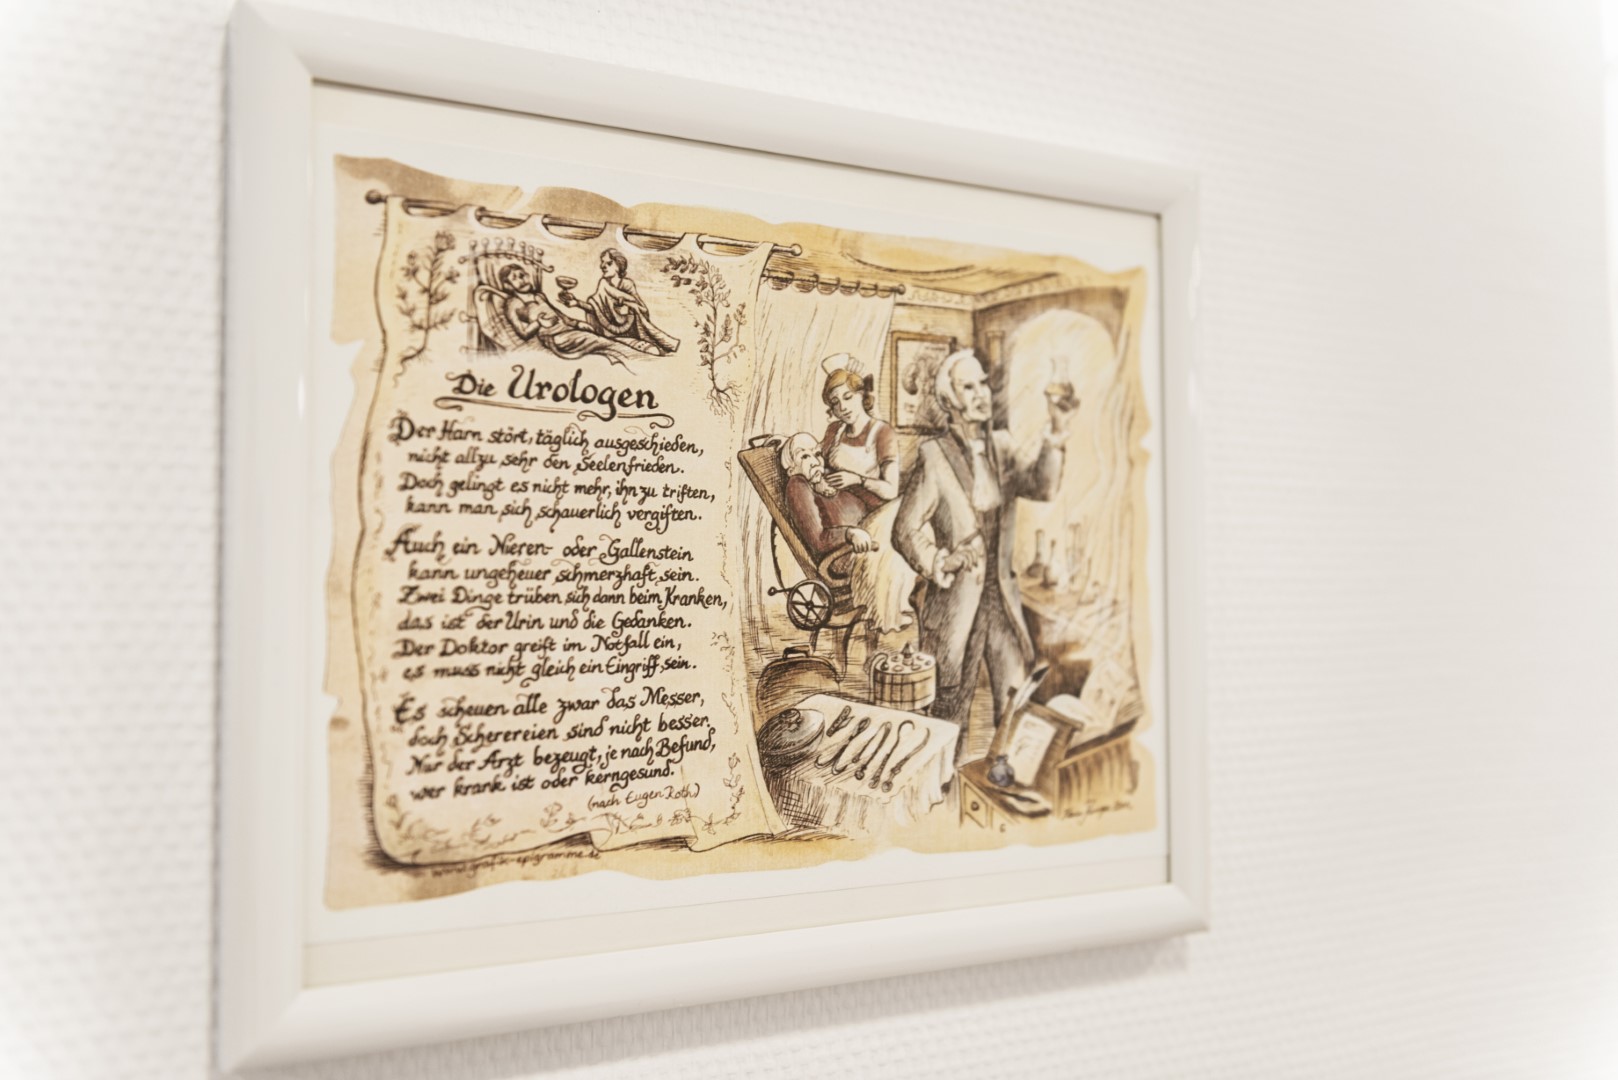 Die Urologen
Der Harn stört, täglich ausgeschieden,
nicht allzu sehr den Seelenfrieden.
Doch gelingt es nicht mehr, ihn zu triften,
kann man sich schauerlich vergiften.
Auch ein Nieren- oder Gallenstein
kann ungeheuer schmerzhaft sein.
Zwei Dinge trüben sich dann beim Kranken,
das ist der Urin und die Gedanken.
Der Doktor greift im Notfall ein,
es muss nicht gleich ein Eingriff sein.
Es scheuen alle zwar das Messer,
doch Scherereien sind nicht besser.
Nur der Arzt bezeugt, je nach Befund,
wer krank ist oder kerngesund.
(nach Eugen Roth)
www.grafik-epigramme.de